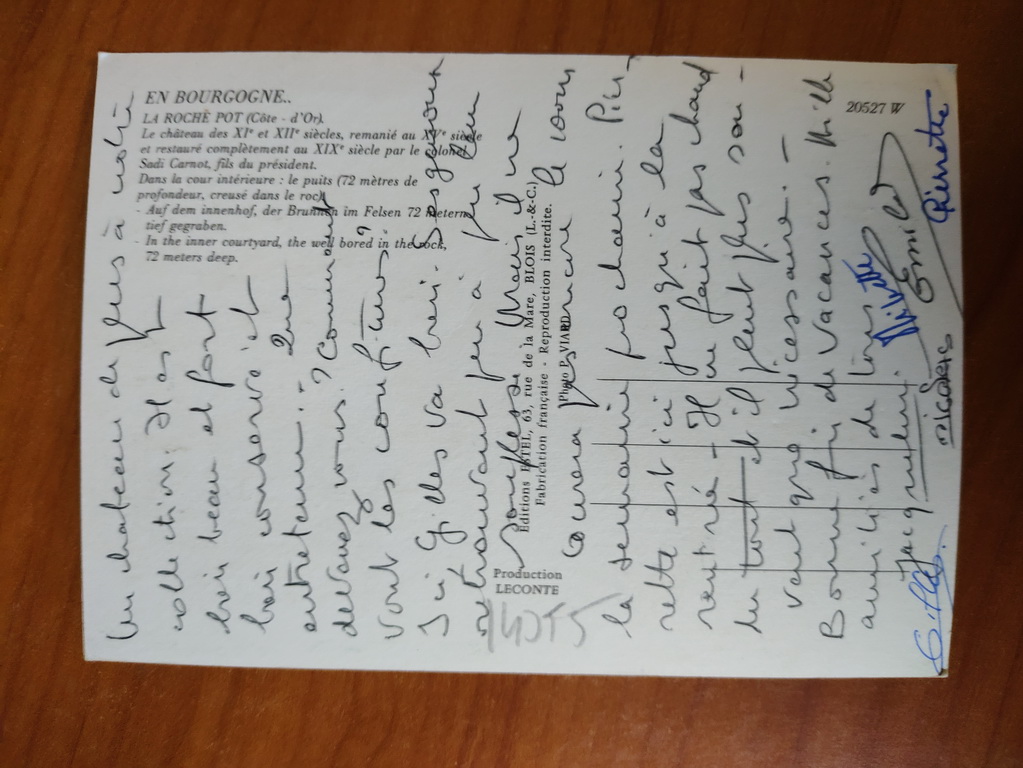 EN BOURGOGNE..
LA ROCHE POT (Côte - d'Or).
Le château des XIᵉ et XIIᵉ siècles, remanié au XVᵉ siècle
et restauré complètement au XIXᵉ siècle par le colonel
Sadi Carnot, fils du président.
Dans la cour intérieure : le puits (72 mètres de
profondeur, creusé dans le roc).
- Auf dem innenhof, der Brunnen im Felsen 72 metern
tief gegraben.
- In the inner courtyard, the well bored in the rock,
72 meters deep.
20527 W
Production
LECONTE
Editions ESTEL, 63, rue de la Mare, BLOIS (L.-&-C.)
Fabrication française - Reproduction interdite.
Photo P. VIARD
Un chateau de plus à votre
collection. Il est
bien beau et fort
bien conservé et
entretenu. - Que
devenez vous ? Comment
vont les confitures ?
Ici Gilles va bien.
retrouvant peu à peu
souplesse Mais il ne
pourra le 1000m
la semaine prochaine. Pier-
rette est ici jusqu'à la
rentrée - Il ne fait pas chaud
du tout et il pleut plus sou-
vent que nécessaire. -
Bonne fin de vacances. Mille
amitiés de tous
Jacqueline.
Gilles
Pierrette